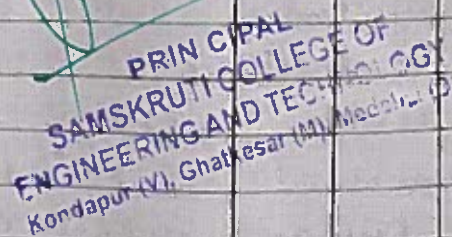 PRINCIPAL
SAMSKRUTI COLLEGE OF
ENGINEERING AND TECHNOLOGY
Kondapur (V), Ghatkesar (M),